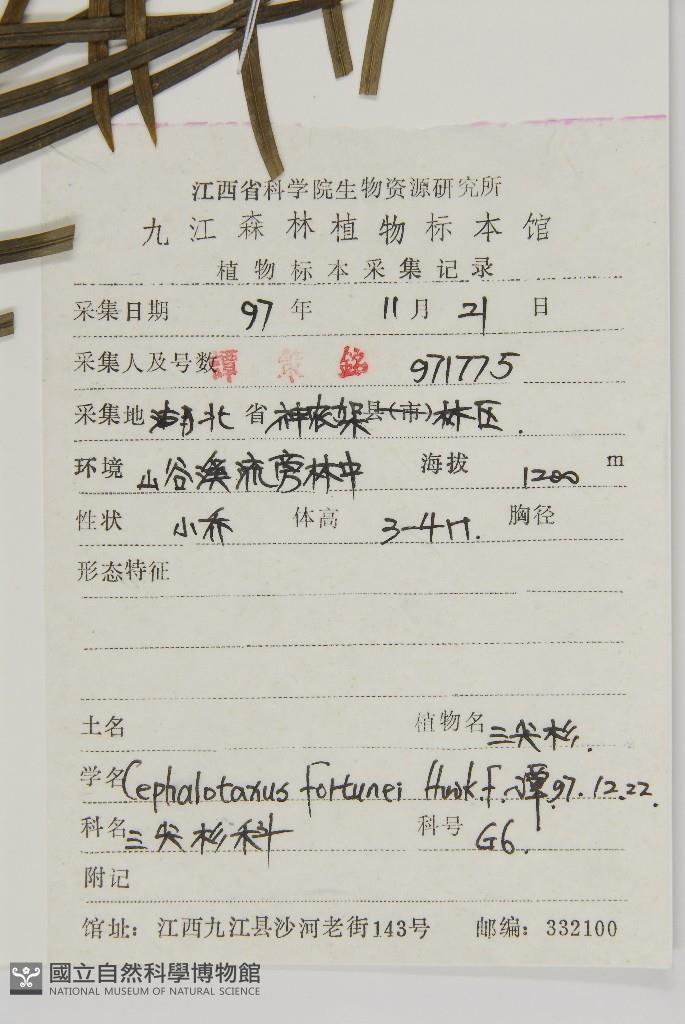 江西省科学院生物资源研究所
九江森林植物标本馆
植物标本采集记录
采集日期 97 年 11 月 21 日
采集人及号数 譚策銘 971775
采集地 湖北 省 神农架县(市)林区.
环境 山谷溪流旁林中 海拔 1200 m
性状 小乔 体高 3-4m. 胸径
形态特征
土名 植物名 三尖杉.
学名 Cephalotaxus fortunei Hook.f. 谭97.12.22.
科名 三尖杉科 科号 G6.
附记
馆址: 江西九江县沙河老街143号 邮编: 332100
國立自然科學博物館
NATIONAL MUSEUM OF NATURAL SCIENCE